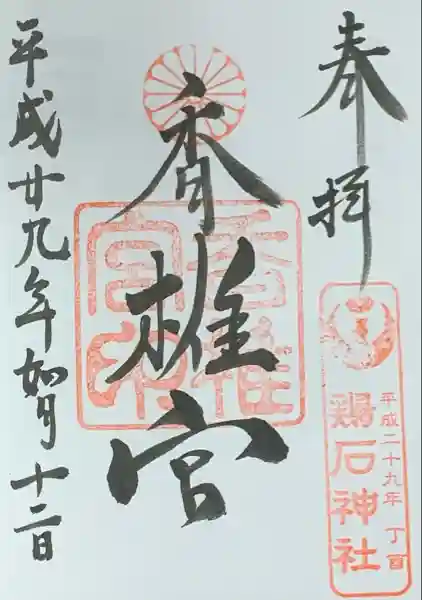 奉拝
平成二十九年 丁酉
鶏石神社
香椎宮
香椎宮印
平成廿九年如月十二日